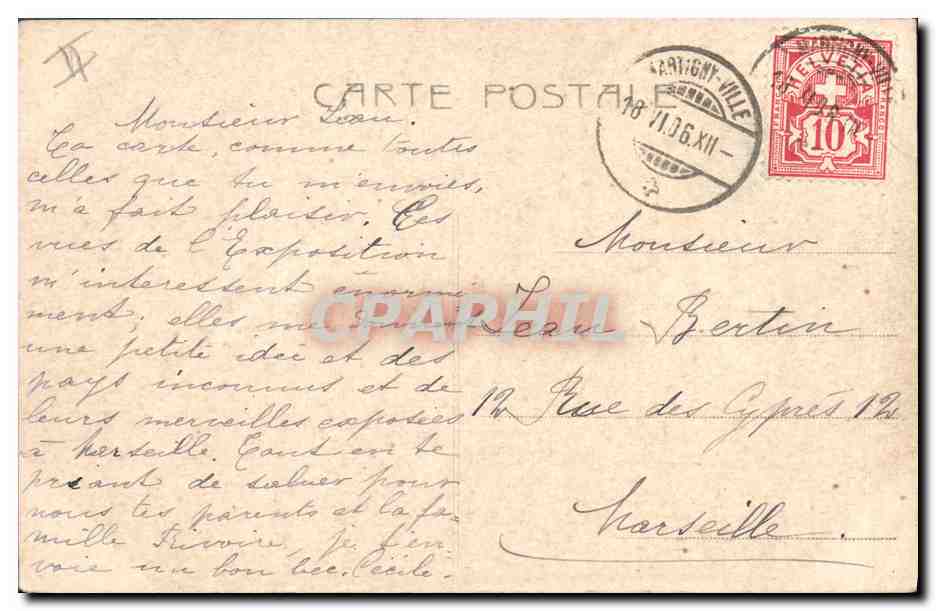 CARTE POSTALE
MARTIGNY-VILLE
18 VI.06.XII-
MARTIGNY-VILLE
HELVETIA
FRANCO
10
Monsieur Jean.
Ta carte, comme toutes
celles que tu m'envoies,
m'a fait plaisir. Ces
vues de l'Exposition
m'interessent énormé-
ment; elles me donnent
une petite idée et des
pays inconnus et de
leurs merveilles exposées
à Marseille. Tout en te
priant de saluer pour
nous tes parents et la fa-
mille Rivoire, je t'en
voie un bon bec. Cécile.
Monsieur
Jean Bertin
12 Rue des Cyprés 12
Marseille.
CPARPHIL